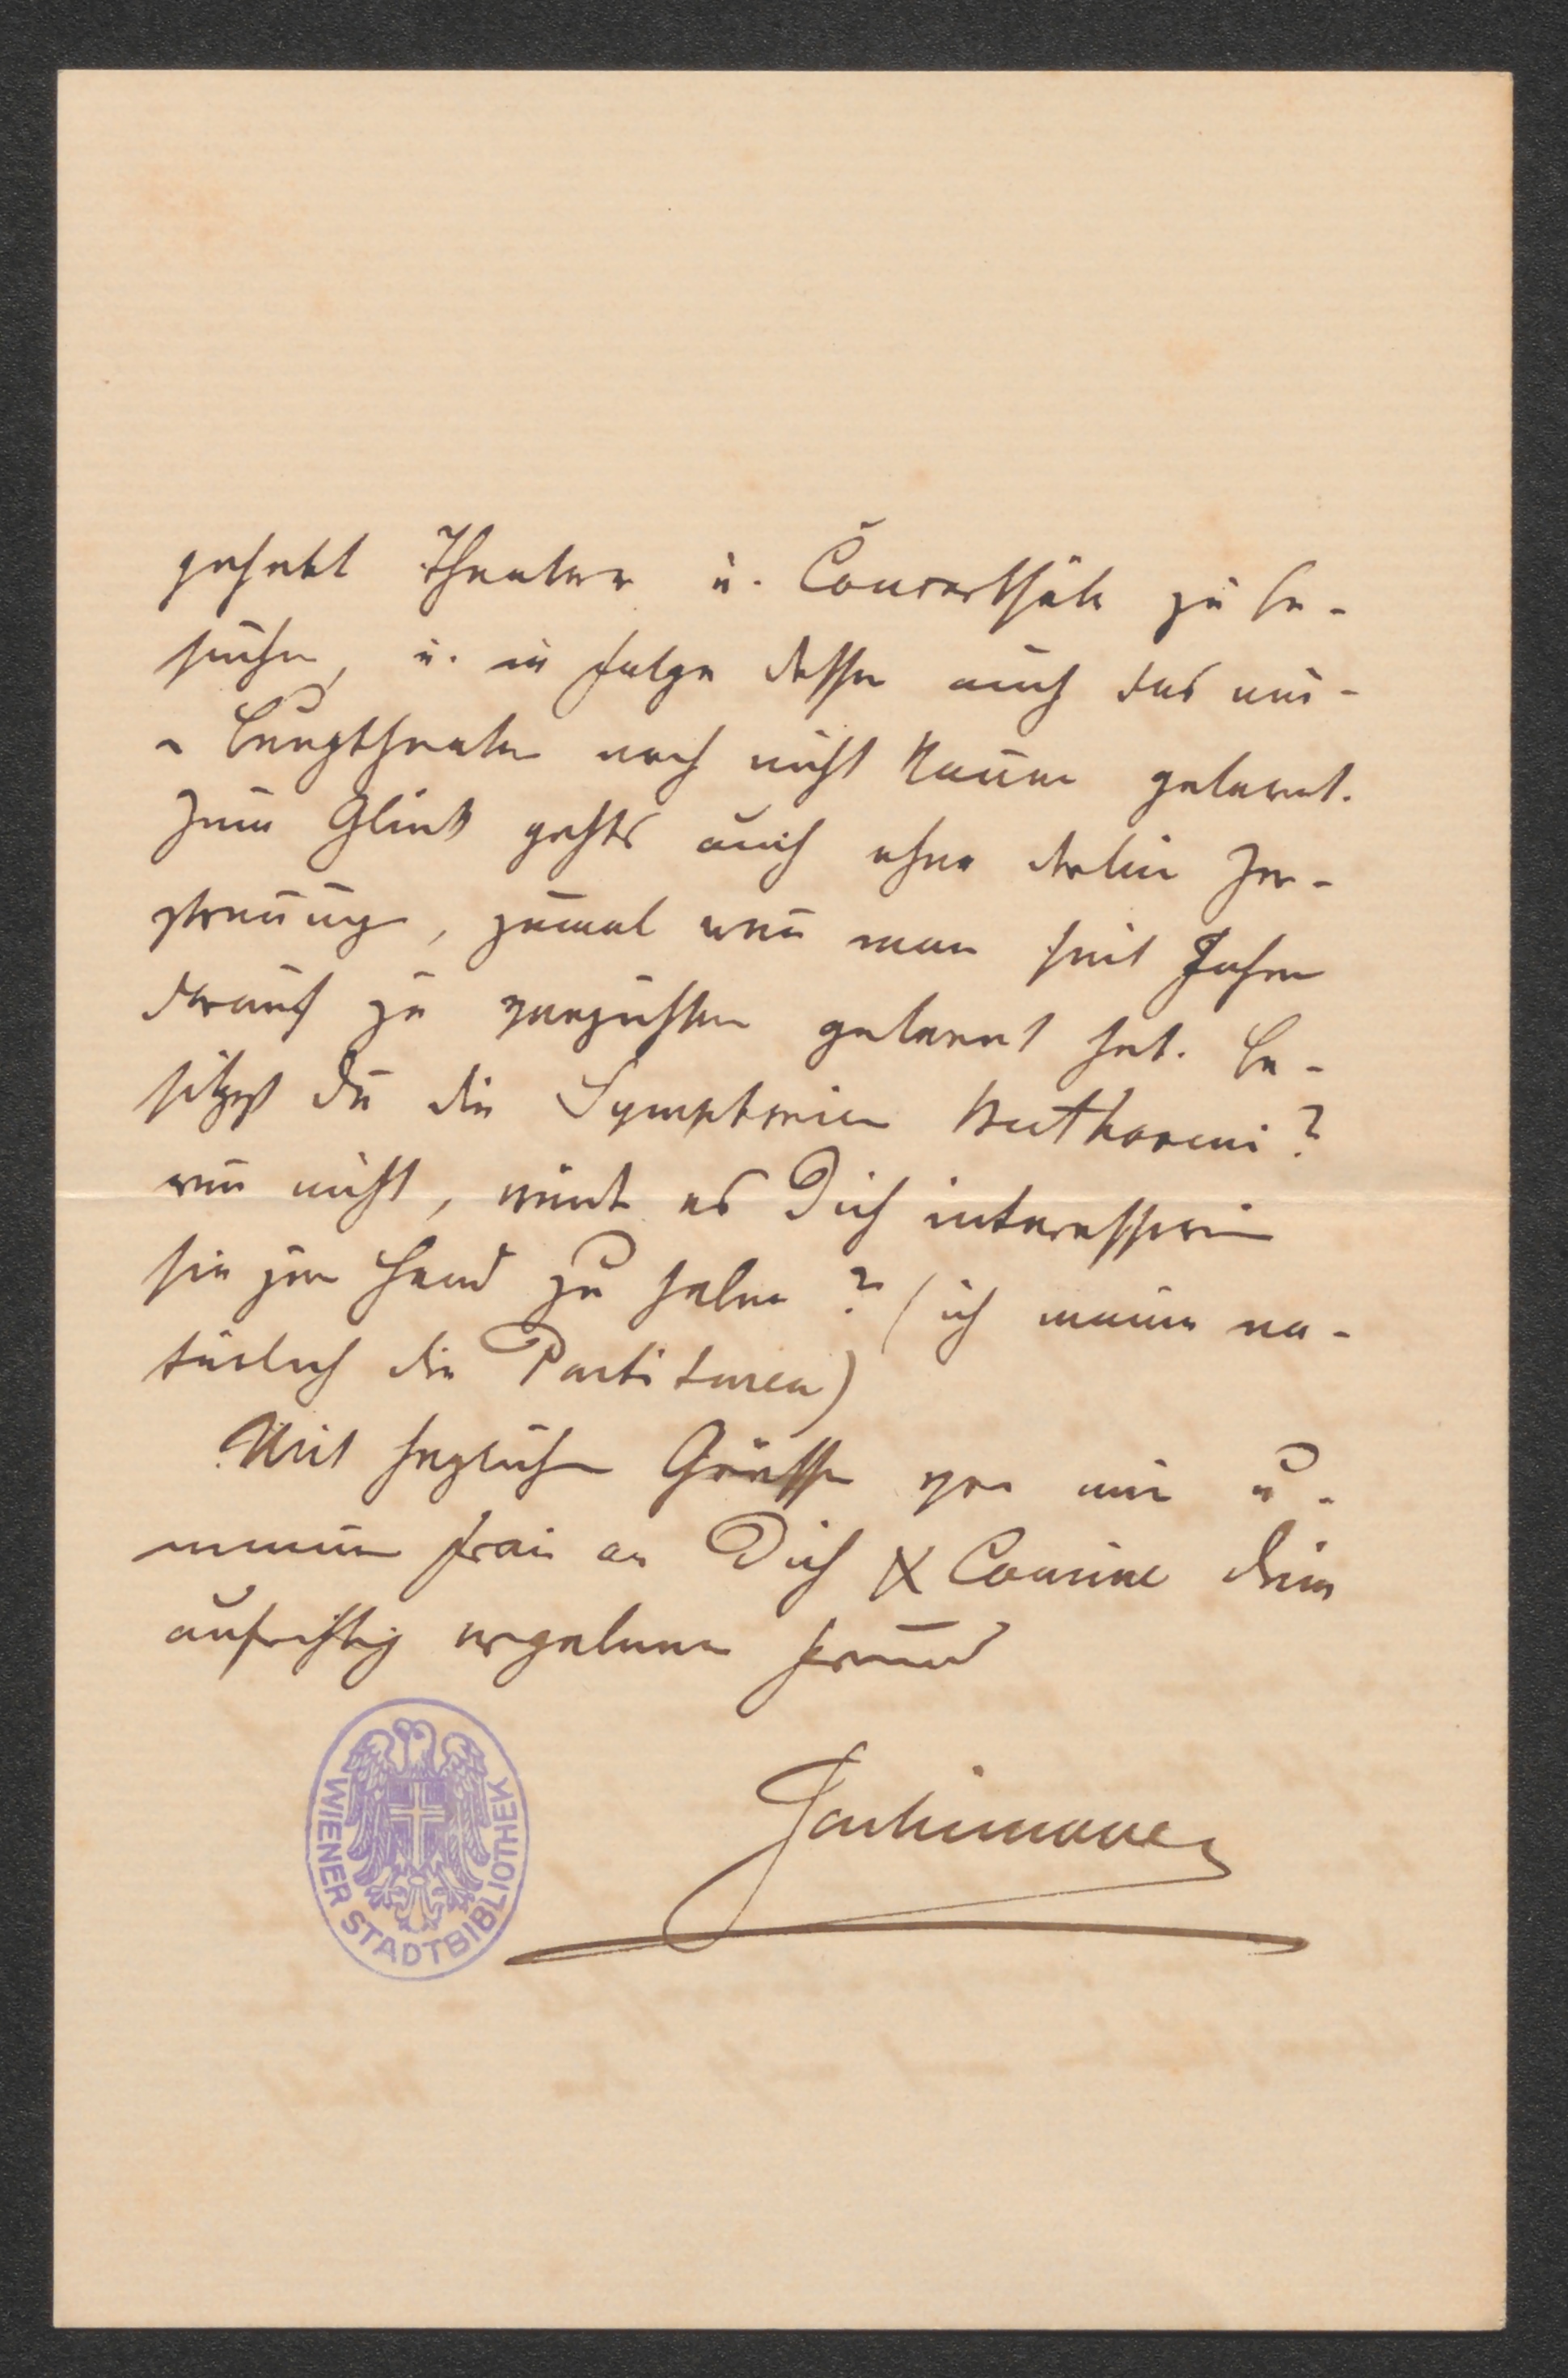 gehabt Theater u. Concertsäle zu be-
suchen, u. in Folge dessen auch das neu-
e Burgtheater noch nicht kennen gelernt.
Zum Glück gehts auch ohne derlei Zer-
streuung, zumal wenn man seit Jahren
darauf zu verzichten gelernt hat. Be-
sitzest du die Symphonien Beethovens?
wenn nicht, würde es Dich interessiren
sie zur Hand zu haben? (ich meine na-
türlich die Partituren)
Mit herzlichen Grüssen von mir u.
meiner Frau an Dich & Cousine dein
aufrichtig ergebener Freund
WIENER STADTBIBLIOTHEK